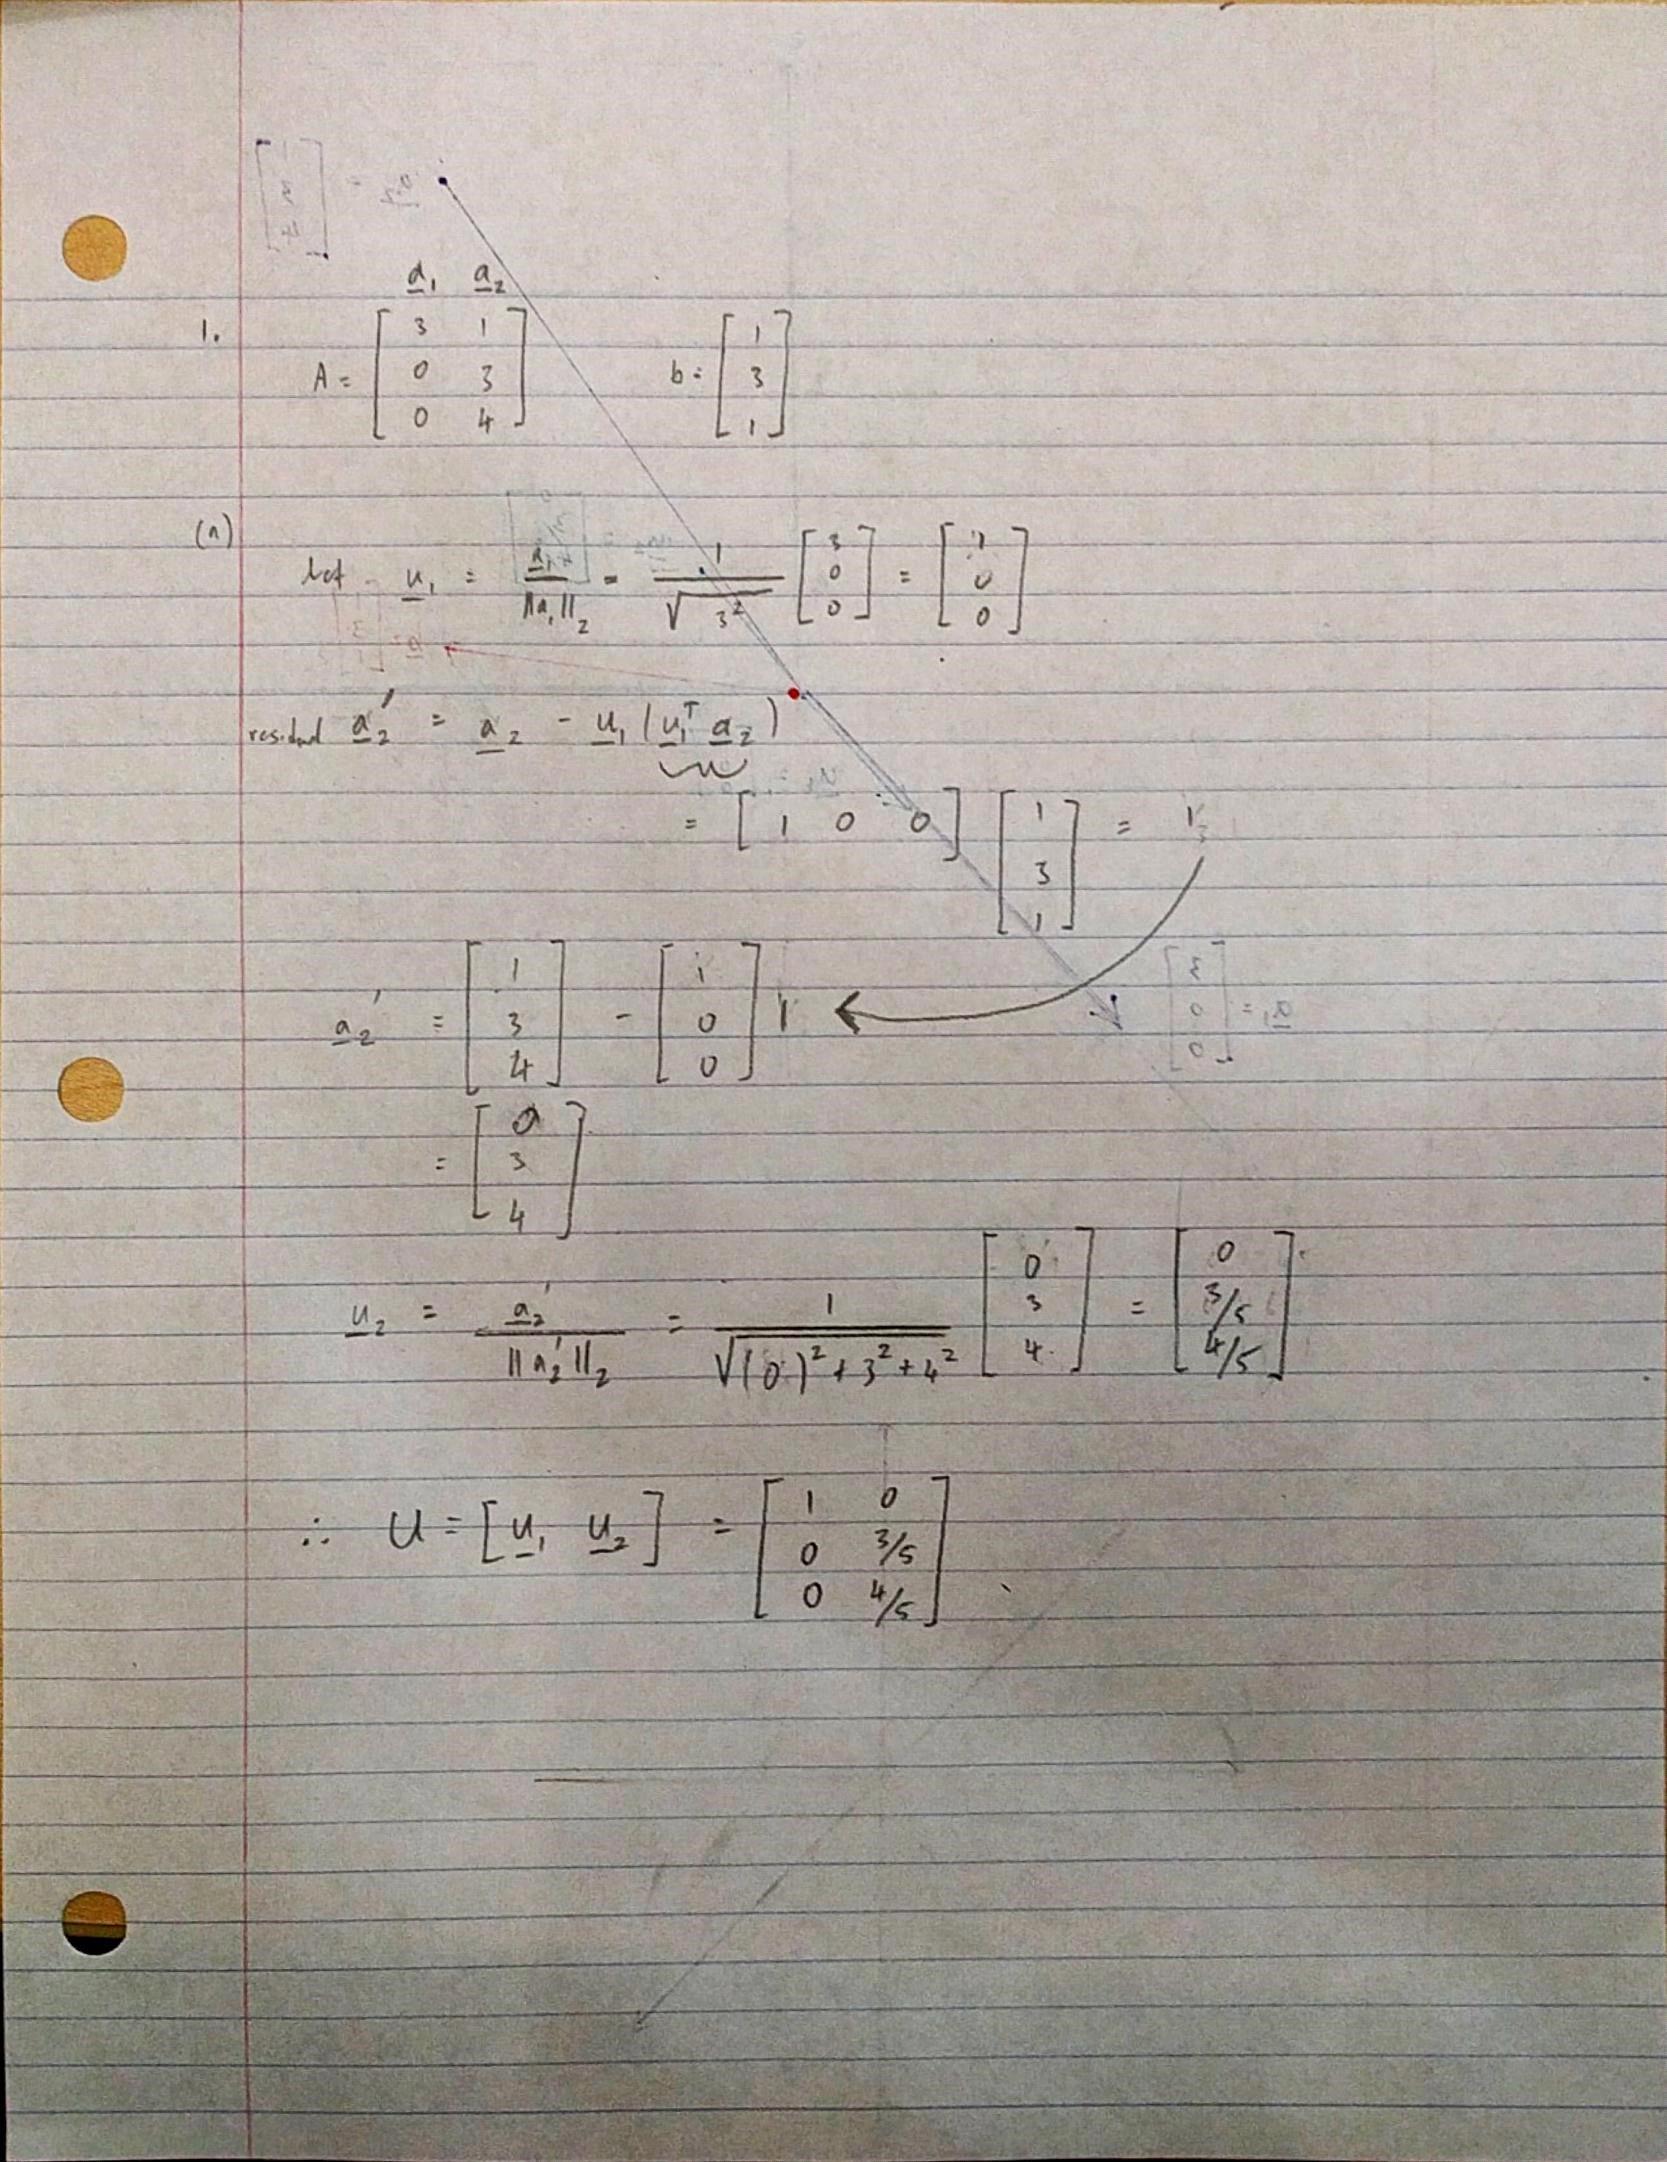 a₁ a₂
1. A = [ 3 1 ; 0 3 ; 0 4 ] b = [ 1 ; 3 ; 1 ]
(a)
let u₁ = a₁ / ||a₁||₂ = 1 / √3² [ 3 ; 0 ; 0 ] = [ 1 ; 0 ; 0 ]
residual a₂' = a₂ - u₁ ( u₁ᵀ a₂ )
= [ 1 0 0 ] [ 1 ; 3 ; 1 ] = 1
a₂' = [ 1 ; 3 ; 4 ] - [ 1 ; 0 ; 0 ] 1
= [ 0 ; 3 ; 4 ]
u₂ = a₂' / ||a₂'||₂ = 1 / √(0)² + 3² + 4² [ 0 ; 3 ; 4 ] = [ 0 ; 3/5 ; 4/5 ]
∴ U = [ u₁ u₂ ] = [ 1 0 ; 0 3/5 ; 0 4/5 ]